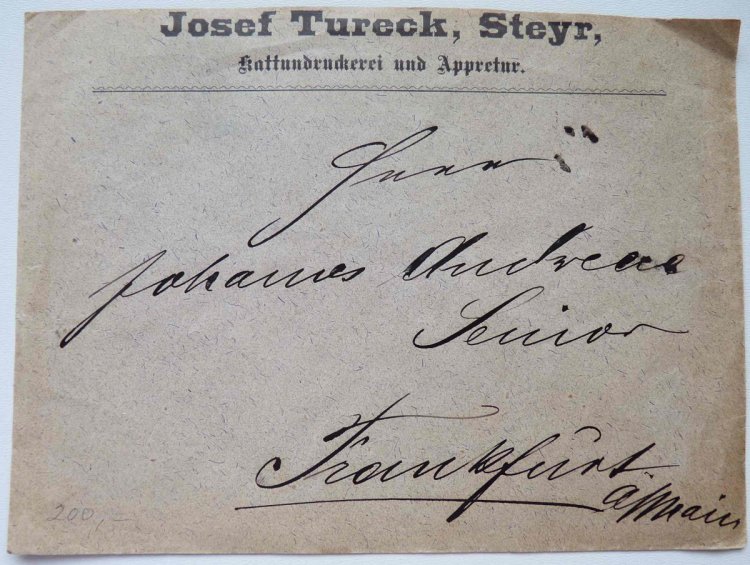 Josef Tureck, Steyr,
Kattundruckerei und Appretur.
Herrn
Johannes Andreae
Senior
Frankfurt
a/Main
200,-